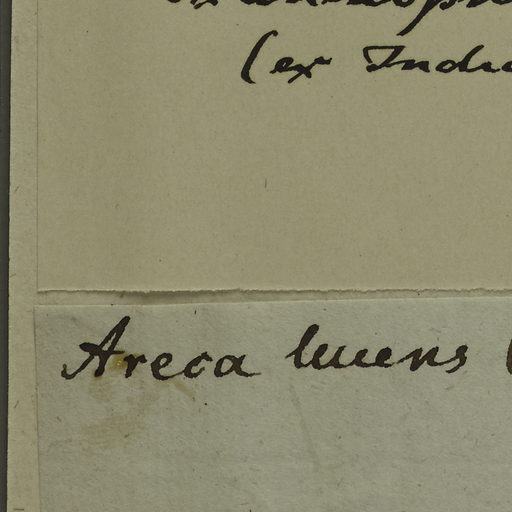 (ex Indi
Areca lucens (